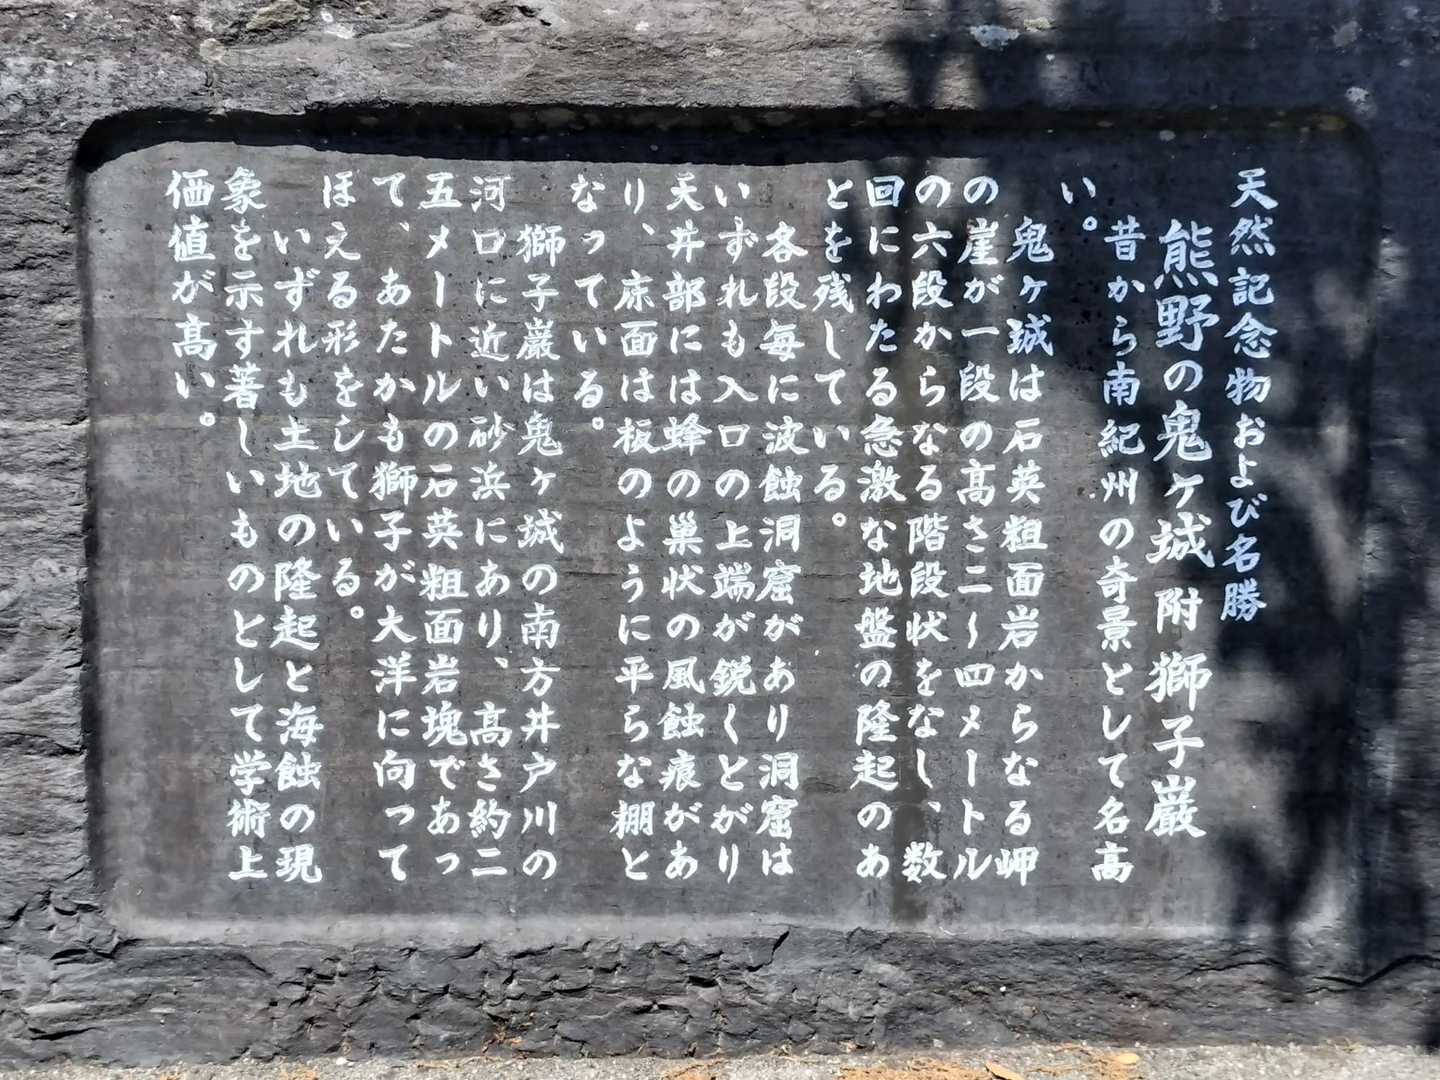 天然記念物および名勝
熊野の鬼ヶ城 附 獅子巖
昔から南紀州の奇景として名高
い。
鬼ヶ城は石英粗面岩からなる岬
の崖が一段の高さ二〜四メートル
の六段からなる階段状をなし、数
回にわたる急激な地盤の隆起のあ
とを残している。
各段毎に波蝕洞窟があり洞窟は
いずれも入口の上端が鋭くとがり
天井部には蜂の巣状の風蝕痕があ
り、床面は板のように平らな棚と
なっている。
獅子巌は鬼ヶ城の南方井戸川の
河口に近い砂浜にあり、高さ約二
五メートルの石英粗面岩塊であっ
て、あたかも獅子が大洋に向って
ほえる形をしている。
いずれも土地の隆起と海蝕の現
象を示す著しいものとして学術上
価値が高い。